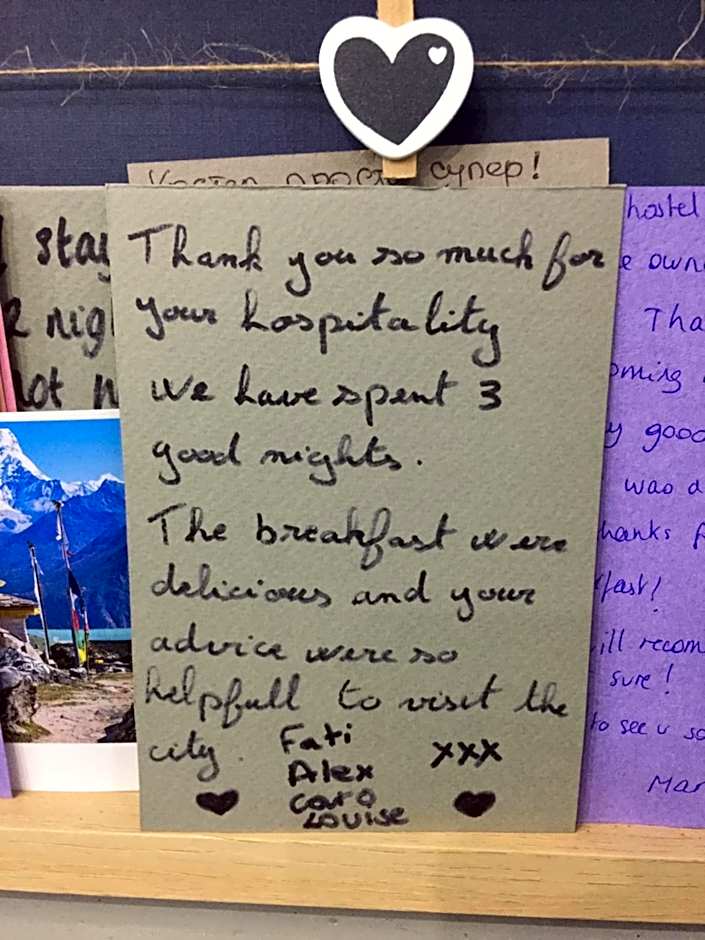 Хостел просто супер!
Thank you so much for
your hospitality
we have spent 3
good nights.
The breakfast were
delicious and your
advice were so
helpfull to visit the
city.
Fati
Alex
Caro
Louise
xxx
stay
nig
not
hostel
e own
Tha
oming
y good
was a
hanks f
fast!
ill recom
sure!
to see u so
Mar